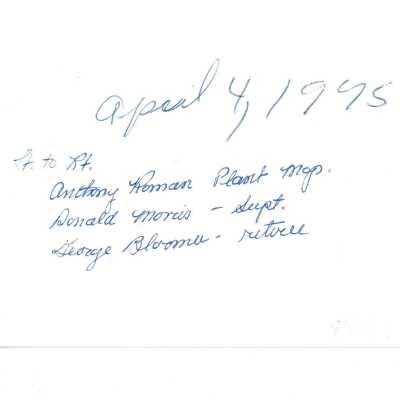 April 4, 1975
Lt. to Rt.
Anthony Roman Plant Mgr.
Donald Morris - Supt.
George Bloomer - retiree